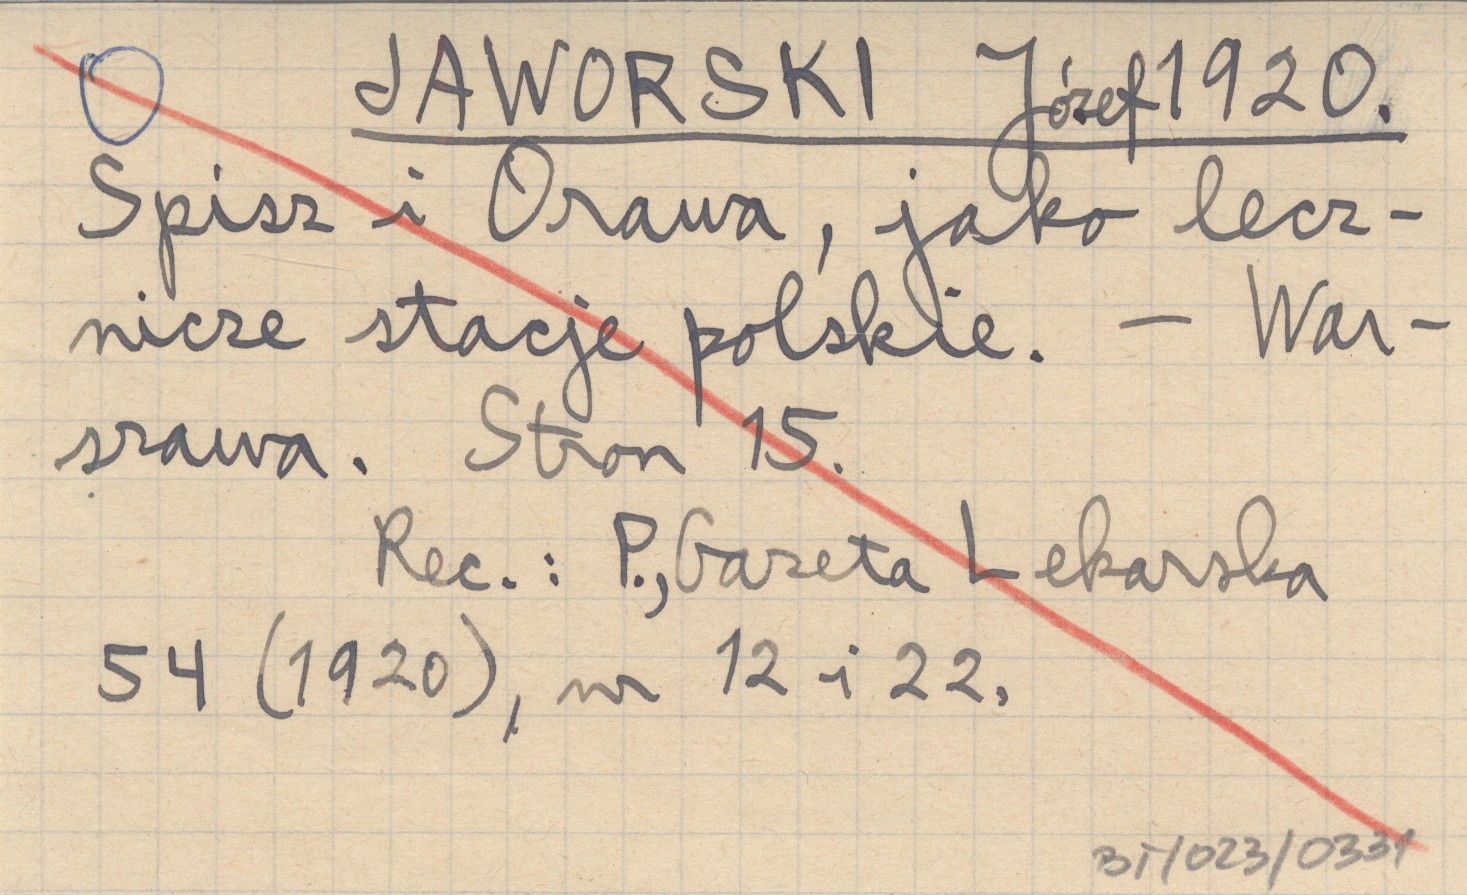 JAWORSKI Józef 1920.
Spisz i Orawa, jako lecz-
nicze stacje polskie. — War-
szawa. Stron 15.
Rec.: P., Gazeta Lekarska
54 (1920), nr 12 i 22.
BT/023/0331